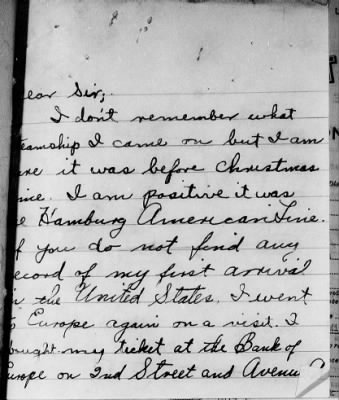 ear Sir;
I don't remember what
teamship I came on but I am
ure it was before Christmas
ime. I am positive it was
e Hamburg American Line.
f you do not find any
ecord of my first arrival
n the United States. I went
o Europe again on a visit. I
ought my ticket at the Bank of
urope on 2nd Street and Avenue